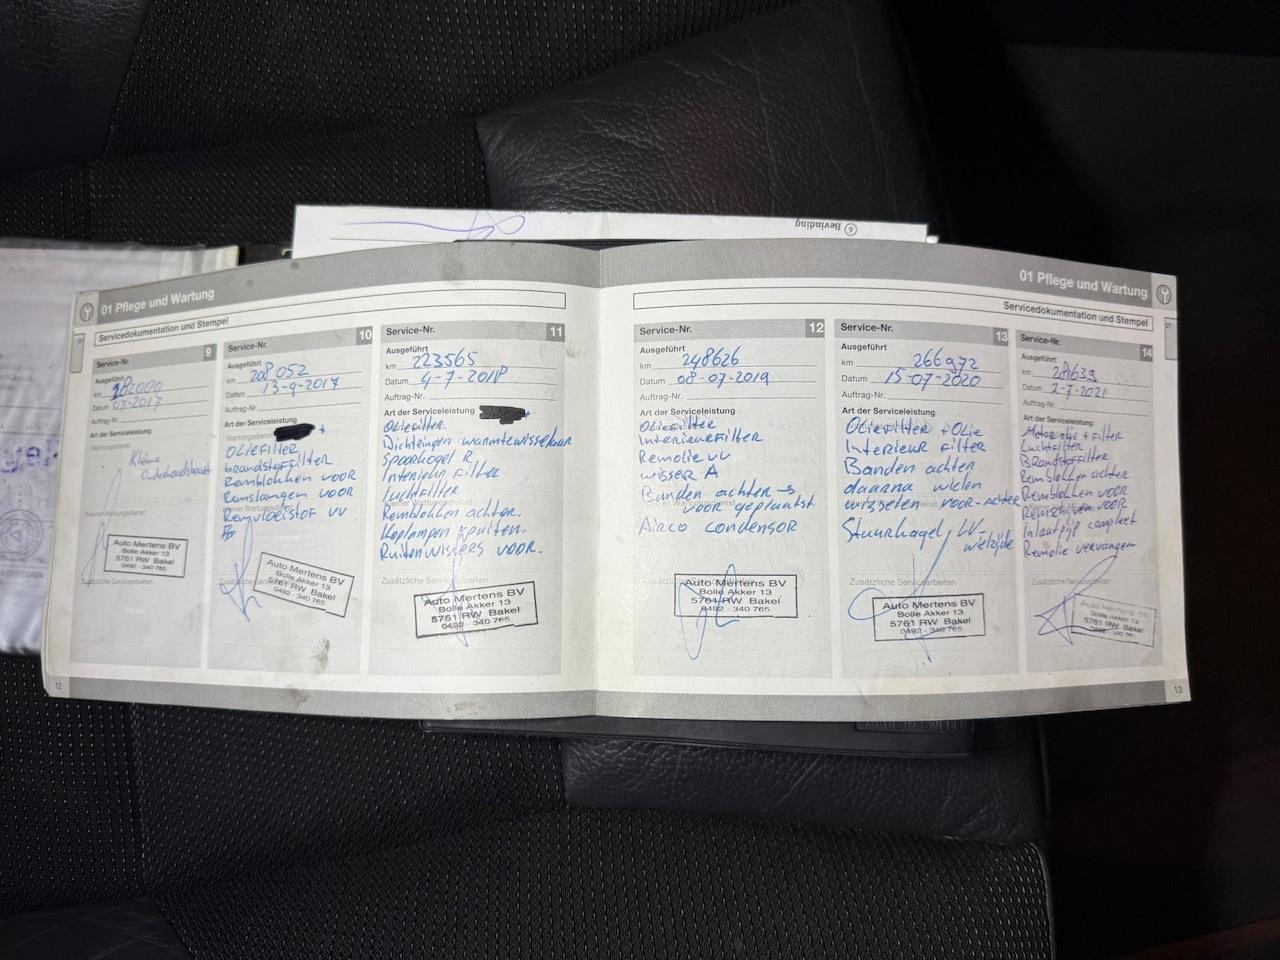 6 Bevinding
01 Pflege und Wartung
Servicedokumentation und Stempel
Service-Nr. 9
Ausgeführt
km
Datum 07-2017
Auftrag-Nr.
Art der Serviceleistung
Wartungsdienst
Kleine
Kleiner Wartungsdienst
Auto Mertens BV
Bolle Akker 13
5761 RW Bakel
0492 - 340 765
Zusätzliche Servicearbeiten
12
Service-Nr. 10
Ausgeführt
km 208052
Datum 13-9-2017
Auftrag-Nr.
Art der Serviceleistung
Wartungsdienst +
Oliefilter
brandstoffilter
Remblokken voor
Remslangen voor
Remvloeistof VV
Auto Mertens BV
Bolle Akker 13
5761 RW Bakel
0492 - 340 765
Service-Nr. 11
Ausgeführt
km 223565
Datum 4-7-2018
Auftrag-Nr.
Art der Serviceleistung
+
Oliefilter
Dichtingen warmtewisselaar
Spoorkogel R.
Interieur Filter
Luchtfilter
Remblokken achter.
Koplampen spuiten.
Ruitenwissers voor.
Zusätzliche Servicearbeiten
Auto Mertens BV
Bolle Akker 13
5761 RW Bakel
0492 - 340 765
01 Pflege und Wartung
Servicedokumentation und Stempel
01
Service-Nr. 12
Ausgeführt
km 248626
Datum 08-07-2019
Auftrag-Nr.
Art der Serviceleistung
Oliefilter
Interieurfilter
Remolie VV
wisser A
Banden achter →
voor geplaatst
Airco condensor
Zusätzliche Servicearbeiten
Auto Mertens BV
Bolle Akker 13
5761 RW Bakel
0492 - 340 765
Service-Nr. 13
Ausgeführt
km 266972
Datum 15-07-2020
Auftrag-Nr.
Art der Serviceleistung
Oliefilter + Olie
Interieur filter
Banden achter
daarna wielen
wisselen voor-achter
Stuurkogel LV-
wielzijde
Zusätzliche Servicearbeiten
Auto Mertens BV
Bolle Akker 13
5761 RW Bakel
0492 - 340 765
Service-Nr. 14
Ausgeführt
km 281639
Datum 2-7-2021
Auftrag-Nr.
Art der Serviceleistung
Motorolie + Filter
Luchtfilter
Brandstoffilter
Remblokken achter
Remblokken voor
Remschijven voor
Inlaatpijp compleet
Remolie vervangen
Zusätzliche Servicearbeiten
Auto Mertens BV
Bolle Akker 13
5761 RW Bakel
0492 - 340 765
13